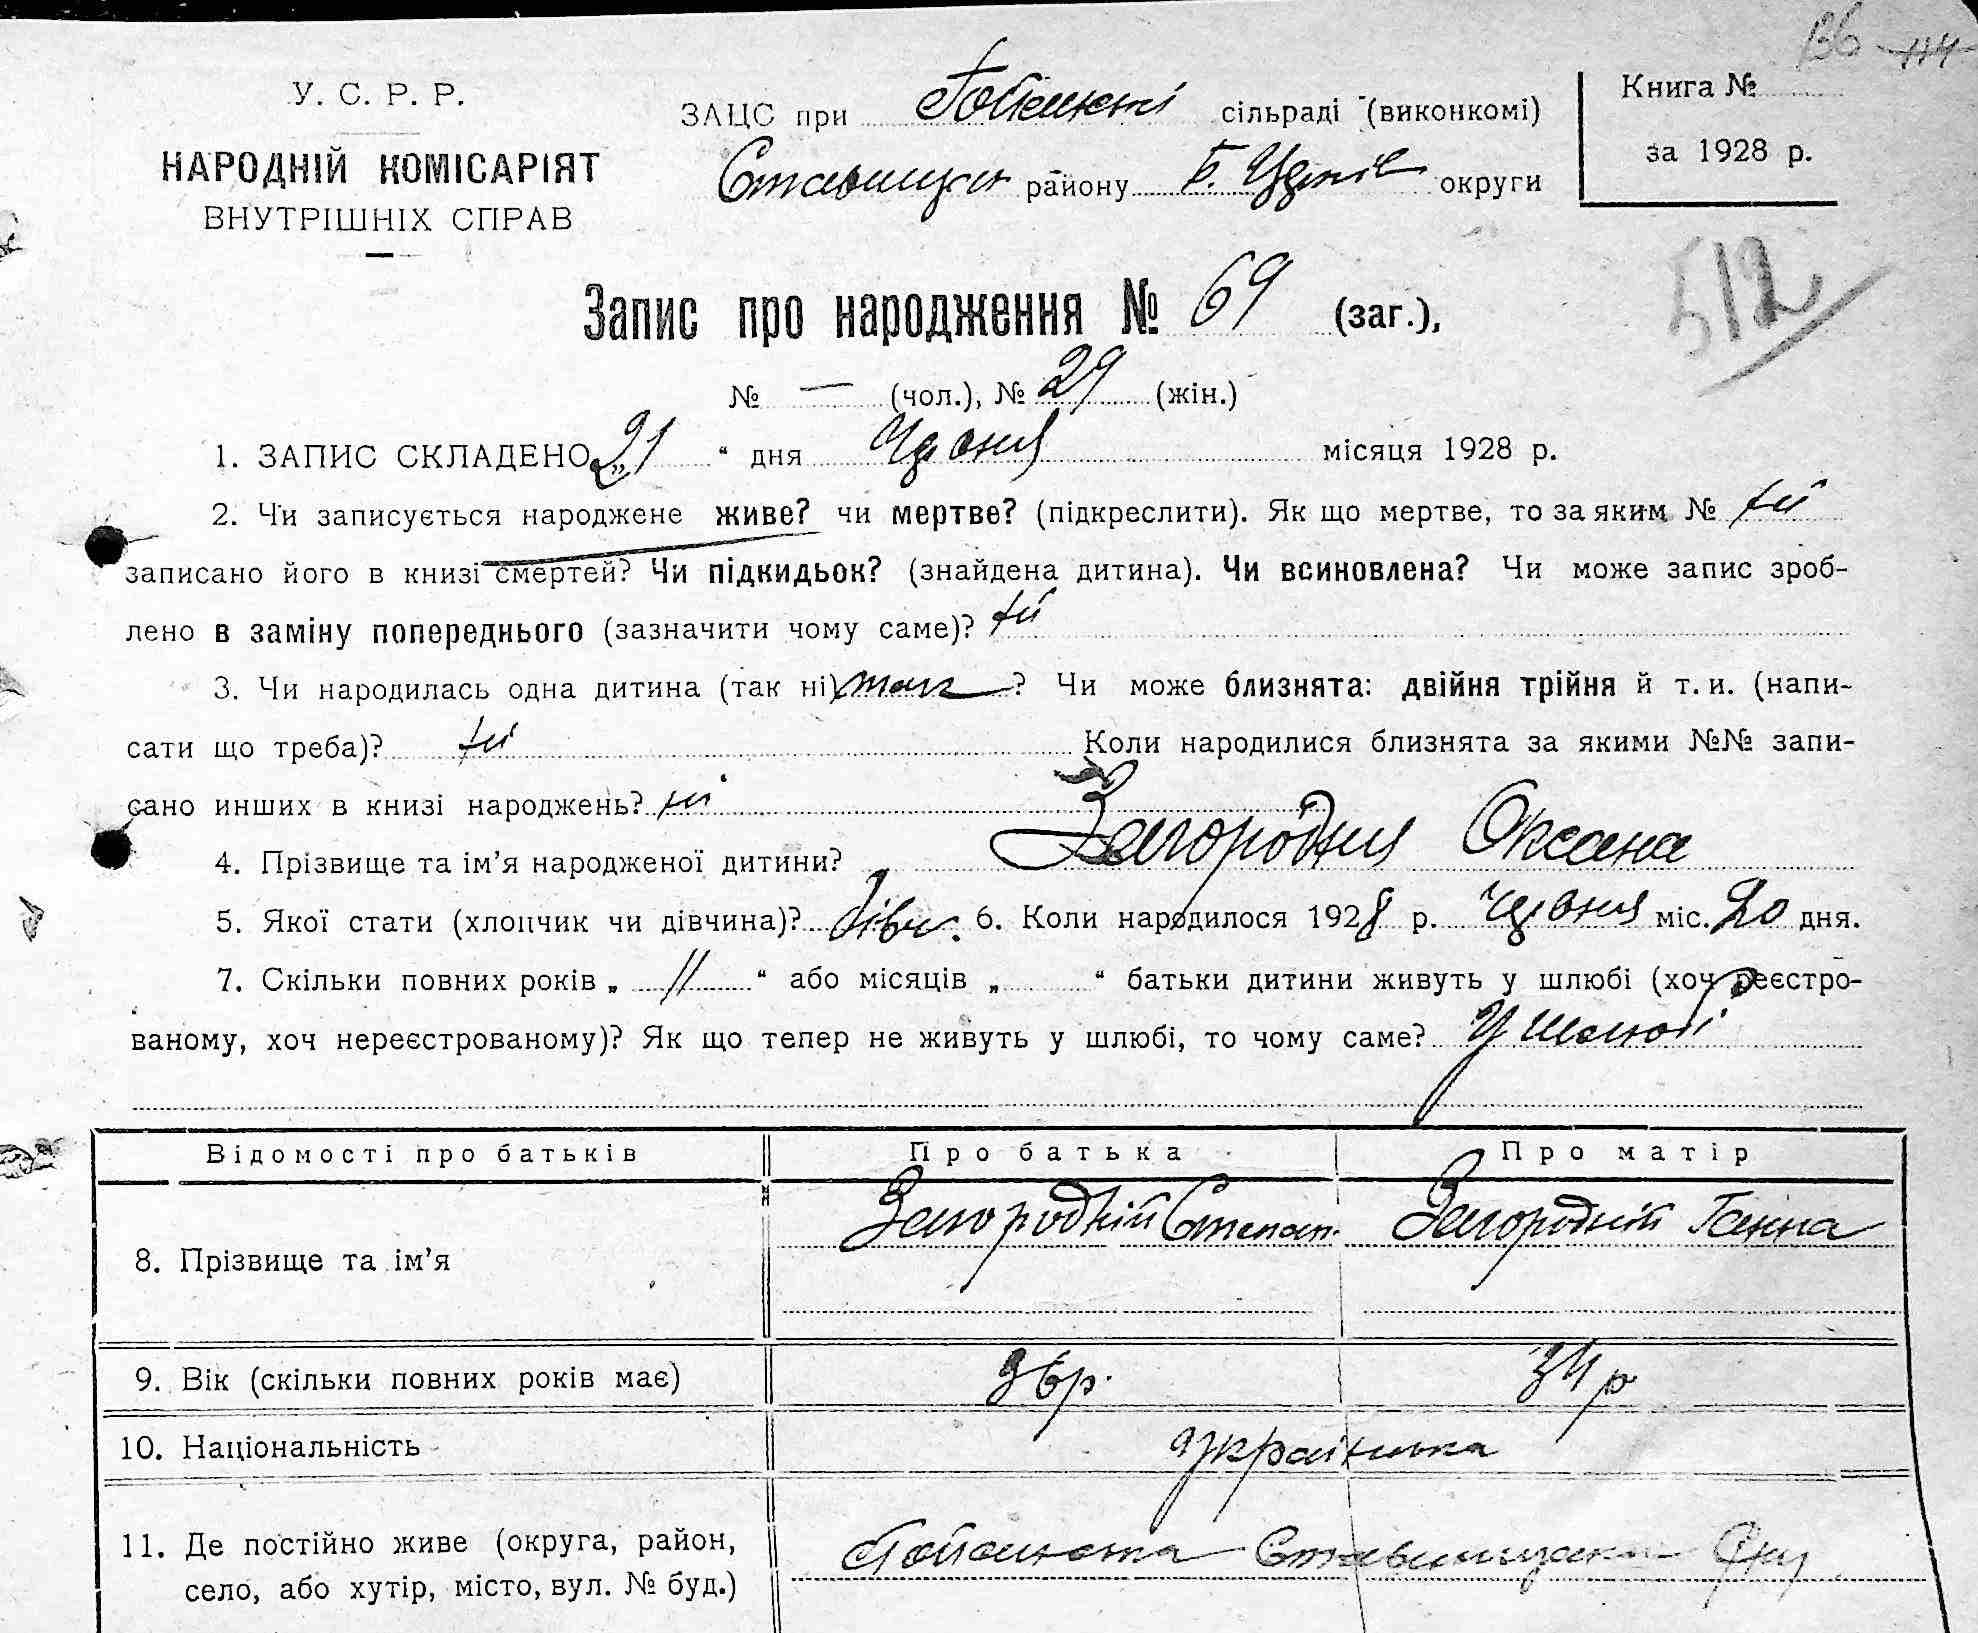 136 114
У. С. Р. Р.
НАРОДНІЙ КОМІСАРІЯТ
ВНУТРІШНІХ СПРАВ
ЗАЦС при сільраді (виконкомі)
району Б. округи
Книга №
за 1928 р.
512
Запис про народження № 69 (заг.),
№ — (чол.), № 29 (жін.)
1. ЗАПИС СКЛАДЕНО „21“ дня Червня місяця 1928 р.
2. Чи записується народжене живе? чи мертве? (підкреслити). Як що мертве, то за яким № ні
записано його в книзі смертей? Чи підкидьок? (знайдена дитина). Чи всиновлена? Чи може запис зроб-
лено в заміну попереднього (зазначити чому саме)? ні
3. Чи народилась одна дитина (так ні) так ? Чи може близнята: двійня трійня й т. и. (напи-
сати що треба)? ні Коли народилися близнята за якими №№ запи-
сано инших в книзі народжень? ні
4. Прізвище та ім’я народженої дитини? Загородня Оксана
5. Якої стати (хлопчик чи дівчина)? дівч. 6. Коли народилося 1928 р. Червня міс. 20 дня.
7. Скільки повних років „ 11 “ або місяців „ “ батьки дитини живуть у шлюбі (хоч реєстро-
ваному, хоч нереєстрованому)? Як що тепер не живуть у шлюбі, то чому саме? У шлюбі
Відомості про батьків Про батька Про матір
8. Прізвище та ім’я Загородній Степан. Загородній Ганна
9. Вік (скільки повних років має) 36 р. 34 р
10. Національність українська
11. Де постійно живе (округа, район,
село, або хутір, місто, вул. № буд.)